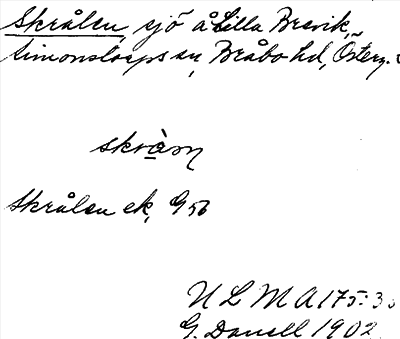 Skrålen, sjö å Lilla Brevik,
Simonstorps sn, Bråbo hd, Österg.
skràɳ
Skrålen ek, G 56
ULMA 175:3
G. Danell 1902.